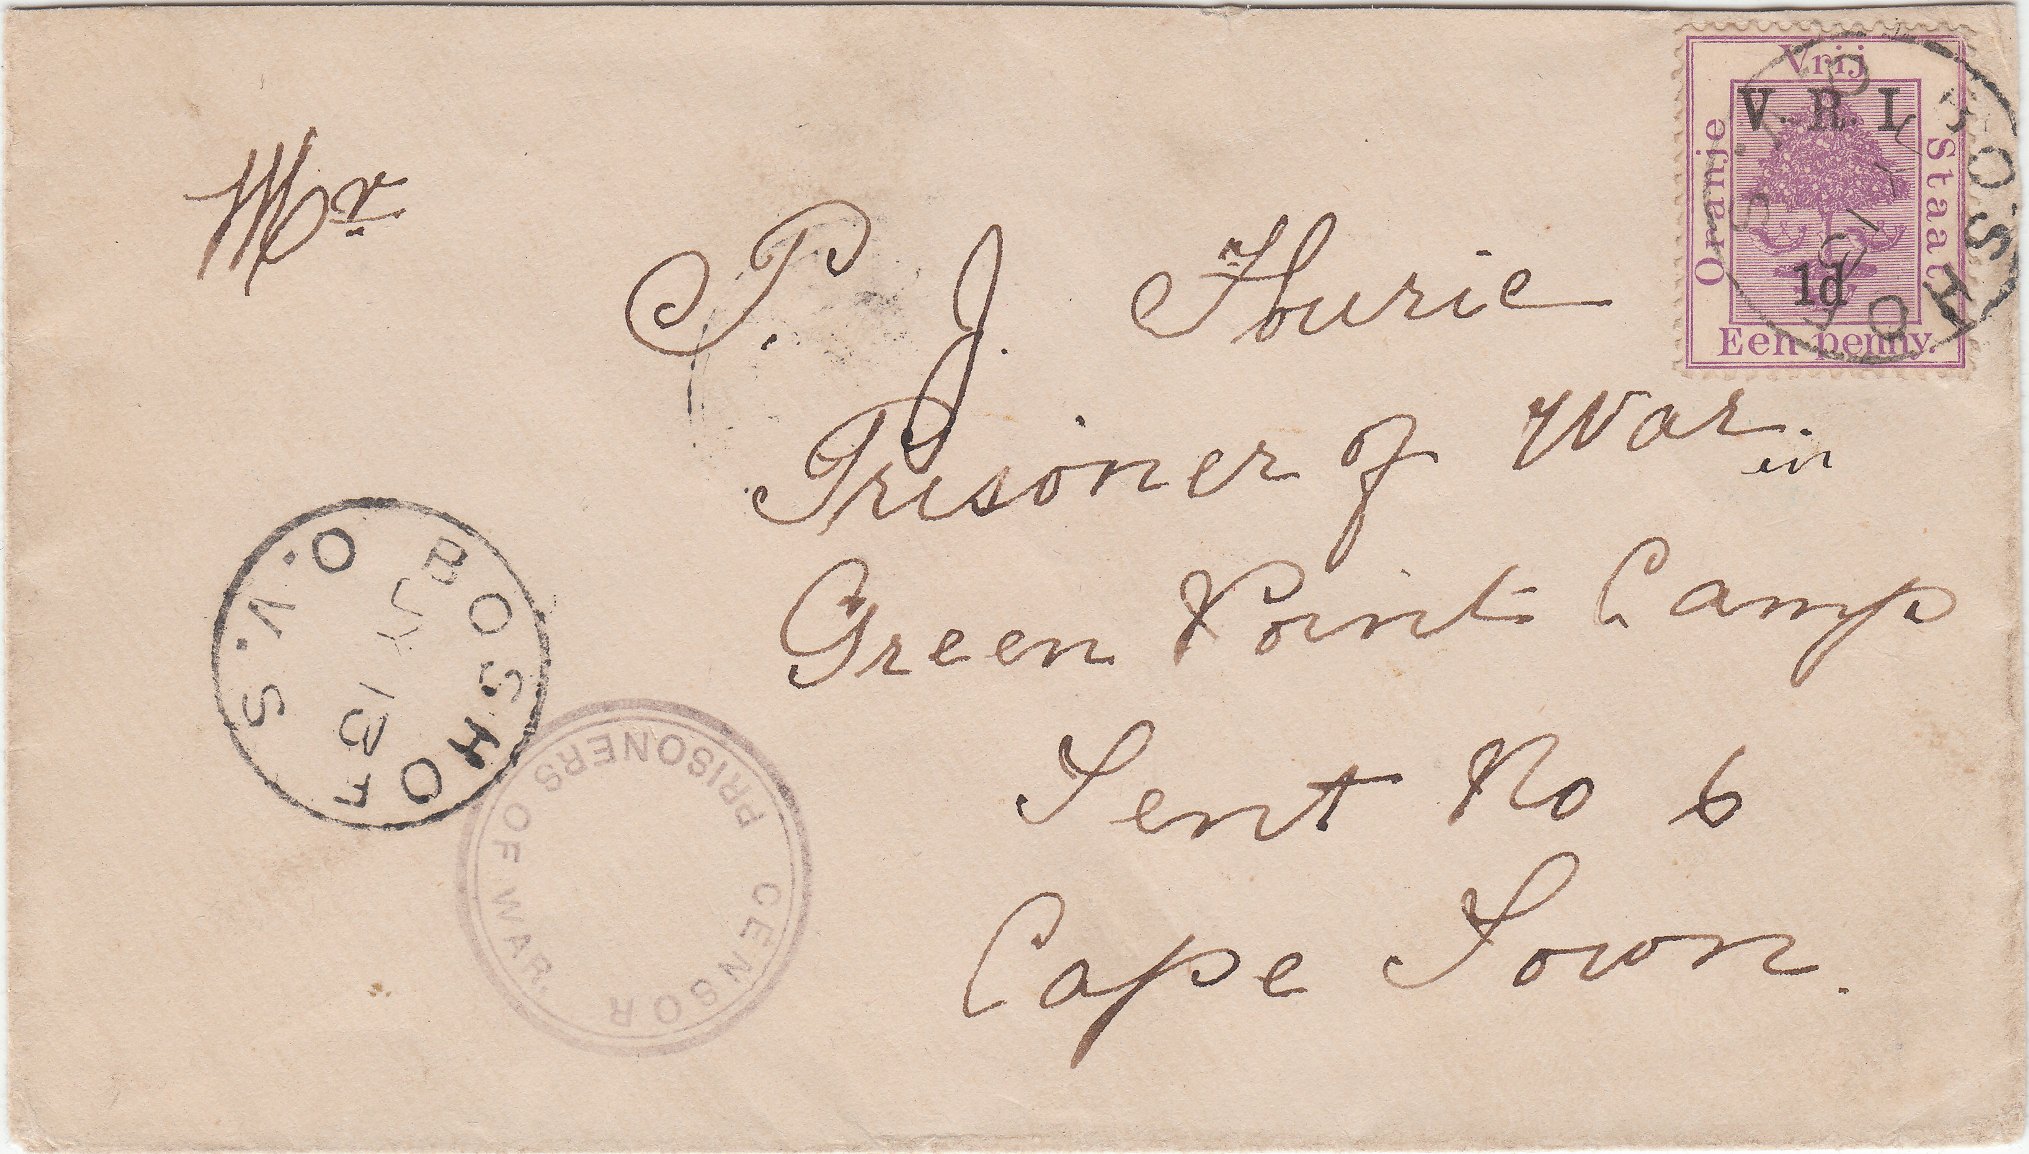 Mr
P. J. Fourie
Prisoner of War. in
Green Point Camp
Tent No 6
Cape Town.
Vrij
Oranje
Staat
V. R. I.
1d
Een penny.
BOSHOF
O.V.S
BOSHOF
JY 13
O.V.S
PRISONERS OF WAR.
CENSOR